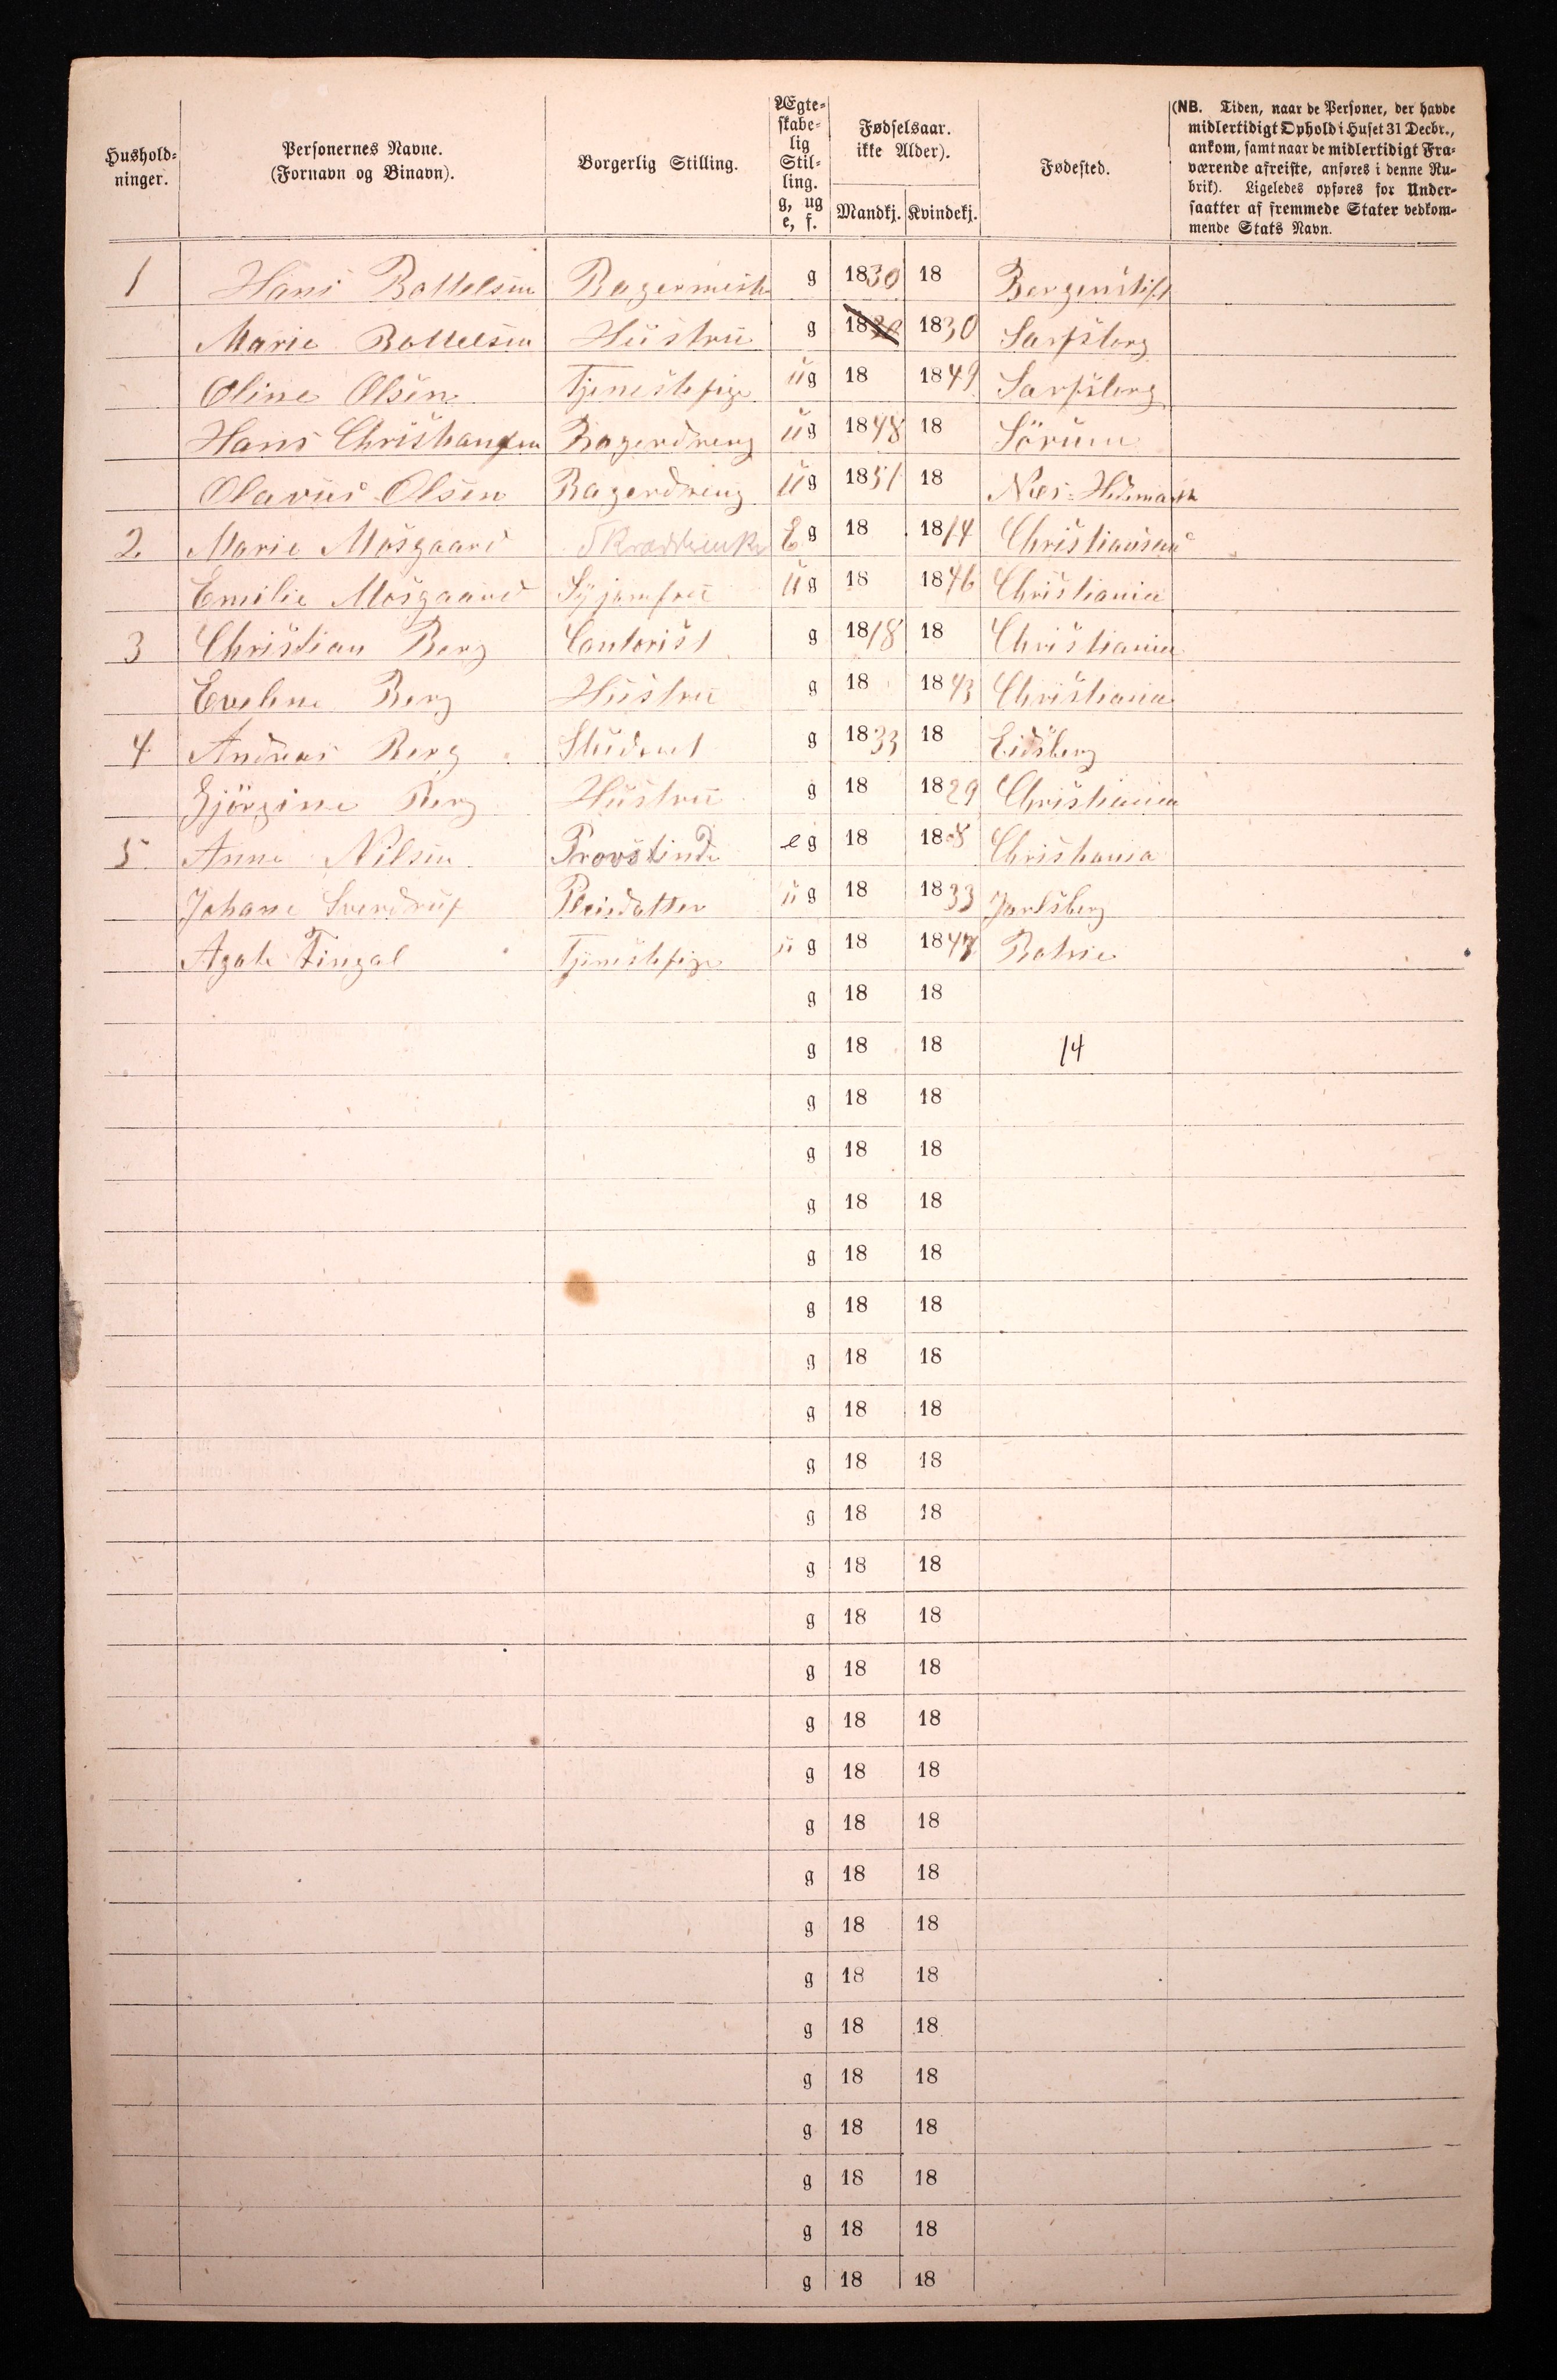 Hushold-
ninger.
Personernes Navne.
(Fornavn og Binavn).
Borgerlig Stilling.
Ægte-
skabe-
lig
Stil-
ling.
g, ug
e, f.
Fødselsaar.
ikke Alder).
Mandkj. Kvindekj.
Fødested.
(NB. Tiden, naar de Personer, der havde
midlertidigt Ophold i Huset 31 Decbr.,
ankom, samt naar de midlertidigt Fra-
værende afreiste, anføres i denne Ru-
brik). Ligeledes opføres for Under-
saatter af fremmede Stater vedkom-
mende Stats Navn.
1 Hans Bottelsen Bagermest g 1830 18 Bergenstift
Marie Bottelsen Hustru g 1830 1830 Sarpsborg
Oline Olsen Tjenestepige ug 18 1849 Sarpsborg
Hans Christiansen Bagerdreng ug 1848 18 Sörum
Olavus Olsen Bagerdreng ug 1851 18 Næs Hedemark
2 Marie Mosgaard E g 18 1814 Christiansand
Emilie Mosgaard Syjomfru ug 18 1846 Christiania
3 Christian Berg Contorist g 1818 18 Christiania
Eveline Berg Hustru g 18 1843 Christiania
4 Andreas Berg Student g 1833 18 Eidsberg
Gjörgine Berg Hustru g 18 1829 Christiania
5 Anne Nilsen Provstinde e g 18 18 Christiania
Johane Sverdrup Pleiedatter u g 18 1833 Jarlsberg
Agate Fingal Tjenestepige u g 18 1847
g 18 18
g 18 18 14
g 18 18
g 18 18
g 18 18
g 18 18
g 18 18
g 18 18
g 18 18
g 18 18
g 18 18
g 18 18
g 18 18
g 18 18
g 18 18
g 18 18
g 18 18
g 18 18
g 18 18
g 18 18
g 18 18
g 18 18
g 18 18
g 18 18
g 18 18
g 18 18